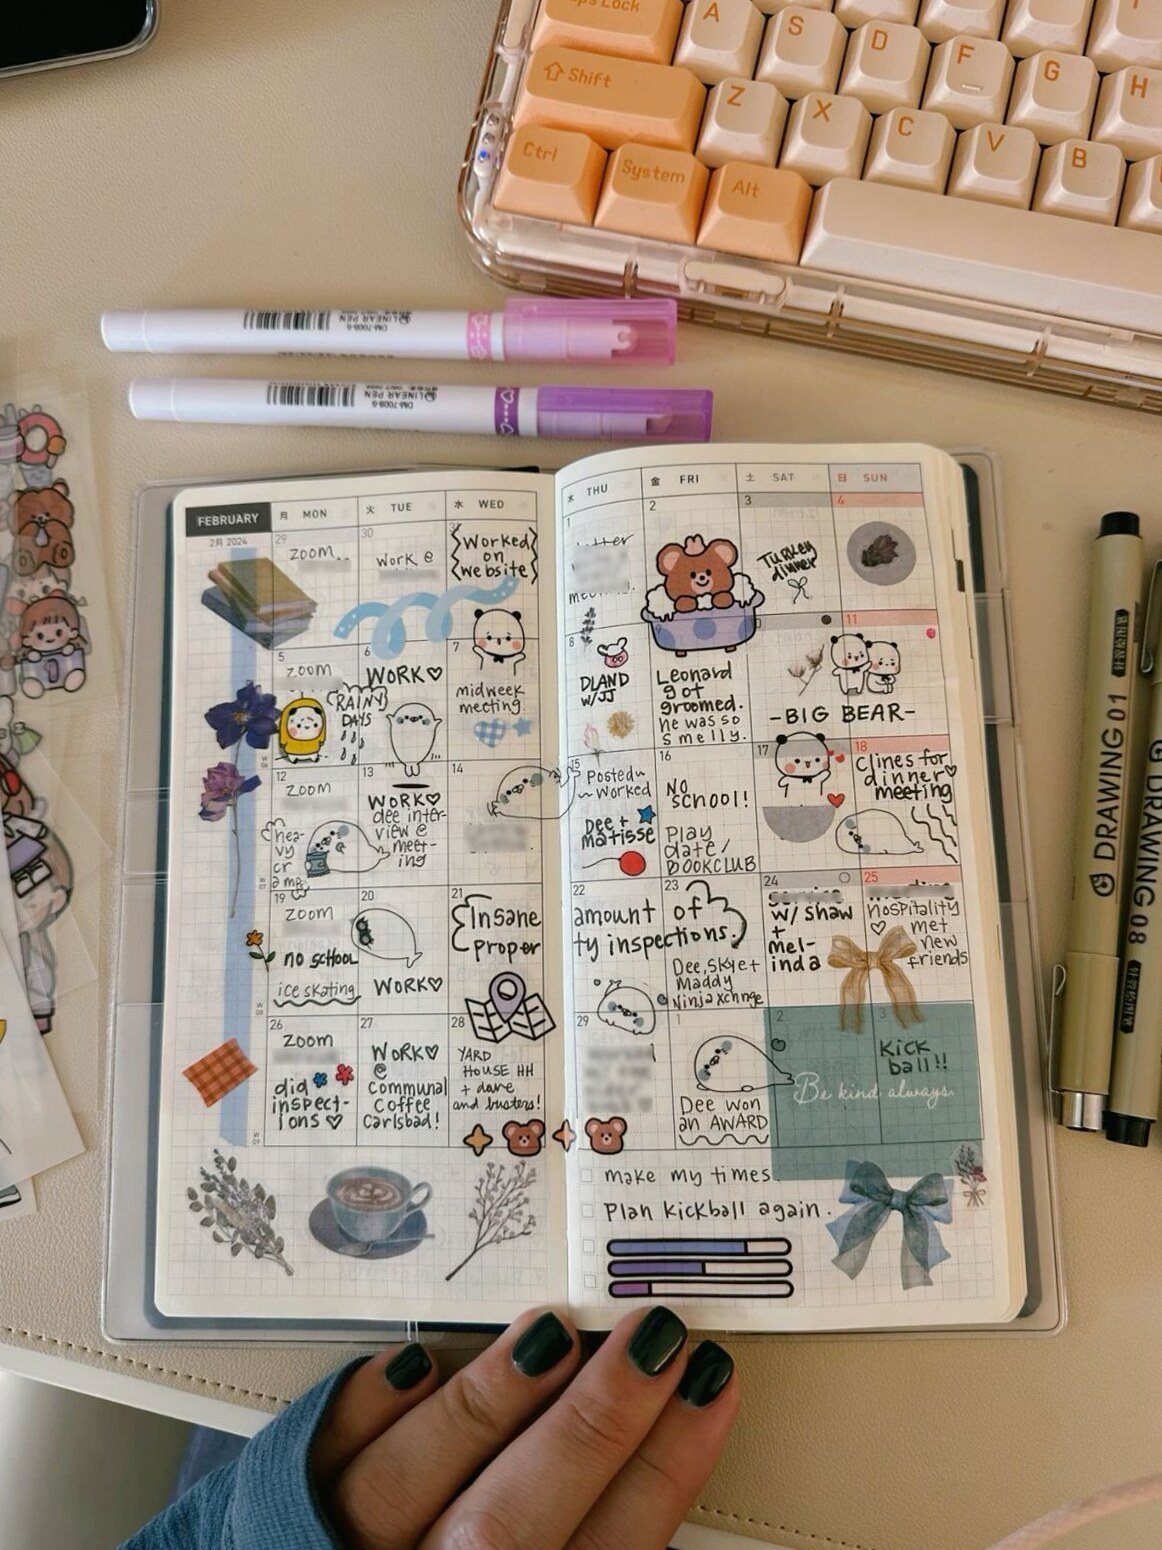 Caps Lock
A
S
D
F
G
H
Shift
Z
X
C
V
B
Ctrl
System
Alt
LINEAR PEN
DM-7008-S
LINEAR PEN
DM-7008-S
DRAWING 01
DRAWING 08
FEBRUARY
2月 2024
月 MON
火 TUE
水 WED
木 THU
金 FRI
土 SAT
日 SUN
29
zoom
30
work @
Worked
on
website
1
2
3
Turkey
dinner
4
5
zoom
RAINY
DAYS
6
WORK♡
7
midweek
meeting
8
DLAND
W/JJ
Leonard
got
groomed.
he was so
smelly.
11
-BIG BEAR-
12
zoom
hea-
vy
cr
amps
13
WORK♡
dee inter-
view @
meet-
ing
14
15
Posted~
~Worked
Dee +
Matisse
16
No
school!
Play
date/
BOOKCLUB
17
18
Clines for
dinner♡
meeting
19
zoom
no school
ice skating
20
WORK♡
21
Insane
proper
22
amount
ty inspections.
23
of
Dee, Skye +
Maddy
Ninjaxchnge
24
service
w/ shaw
+
mel-
inda
25
hospitality
♡ met
new
friends
26
zoom
did
inspect-
ions♡
27
WORK♡
@
Communal
Coffee
Carlsbad!
28
YARD
HOUSE HH
+ dave
and busters!
29
1
Dee won
an AWARD
2
3
Kick
ball!!
Be kind always.
make my times.
Plan kickball again.